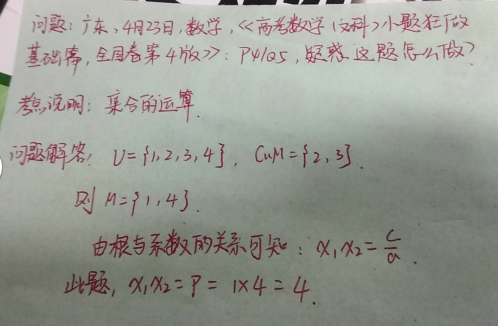 问题：广东，4月23日，数学，《高考数学（文科）小题狂做
基础篇，全国卷第4版》：P4/Q5，疑惑：这题怎么做？
考点说明：集合的运算
问题解答：U={1,2,3,4}，CuM={2,3}.
则 M={1,4}.
由根与系数的关系可知：x₁x₂=c/a.
此题，x₁x₂=P=1×4=4.